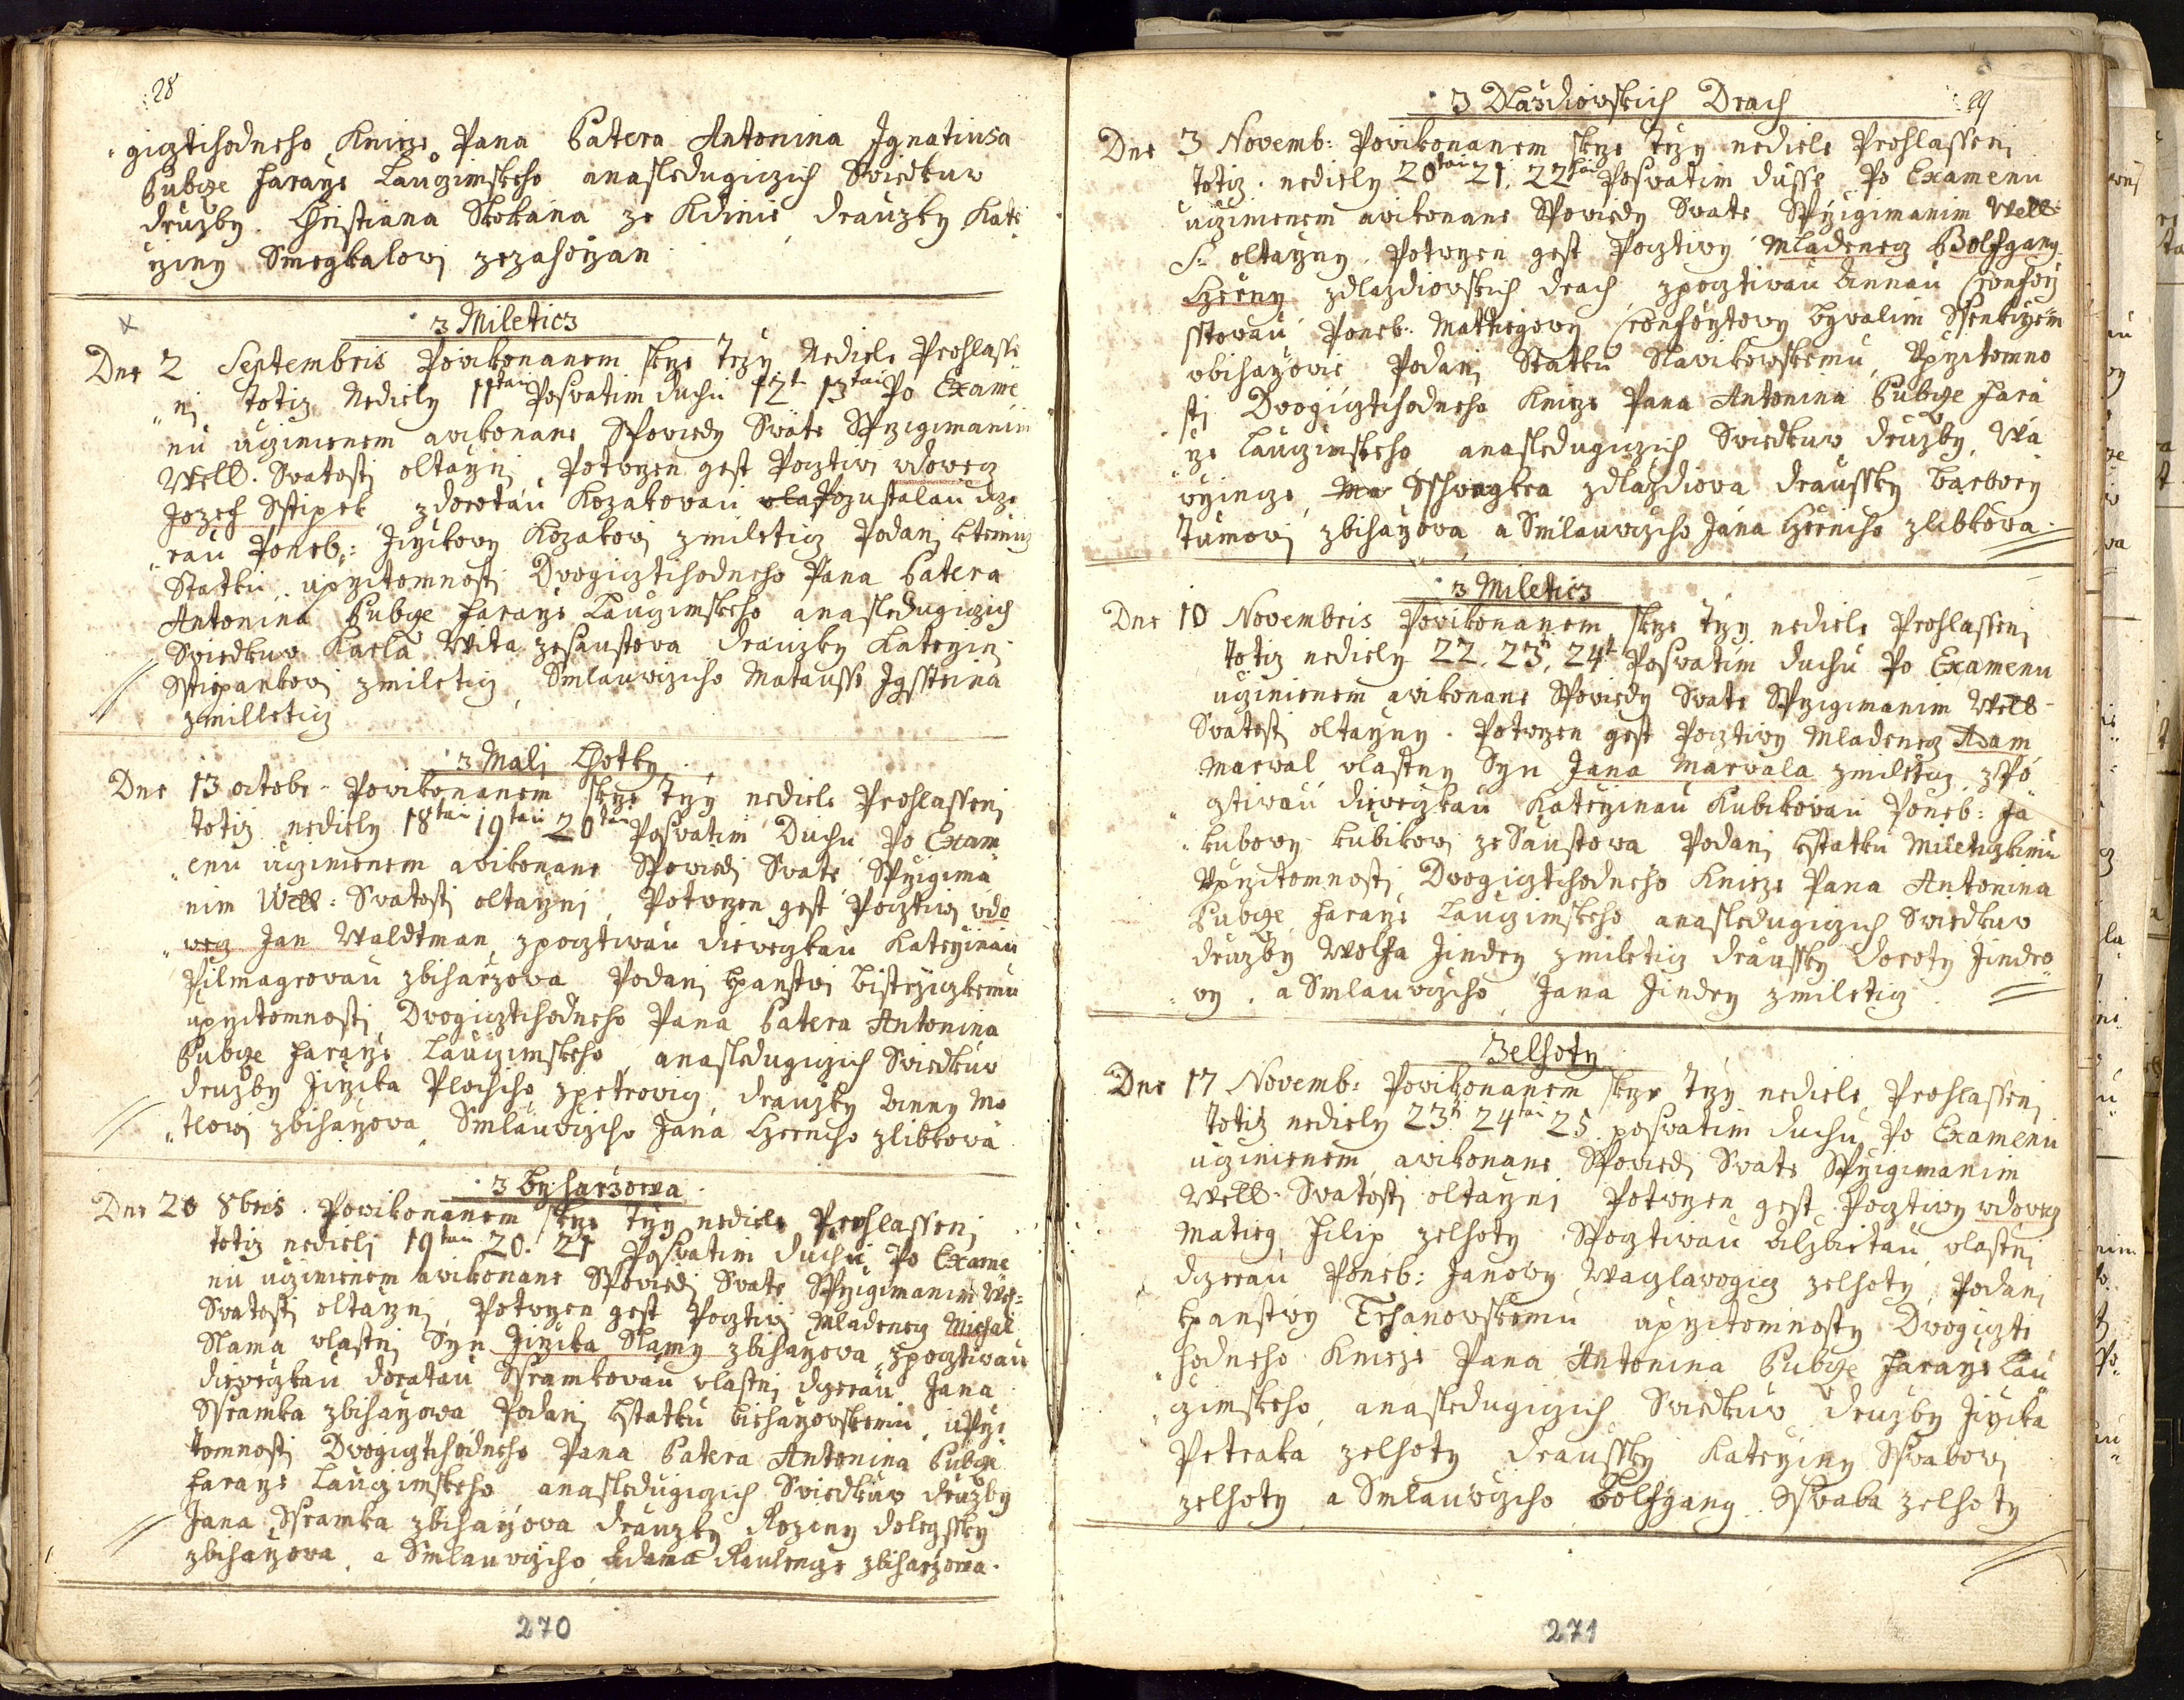 28
gicztihodneho Knieze Pana Patera Antonina Ignatiusa
Pubcze faraze Lauczimskeho anasledugiczich Swiedkuw
druzby Christiana Skokana ze Kdinie drauzky Kate
rziny Smegkalowi zezahorzan
z Mileticz
Dne 2 Septembris Powikonanem skrze trzy Nediele Prohlasse
ni totiz Nediely 11tau Poswatim duchu 12t 13tau Po Exame
nu ucziniemem awikonane Spowiedy Swate Sprzigimanim
Well. Swatosti oltarzni Potwrzen gest Pocztiwi wdowecz
Jozef Sstipek zdorotau Kozakowau wla Pozustalau dcze
rau Poneb: Jirzikowy Kozakowi zmileticz Podani ktemuz
Statku uprzitomnosti Dwogicztihodneho Pana Patera
Antonina Pubcze faraze Lauczimskeho anasledugiczich
Swiedkuw Karla Wita zesaustowa drauzky Katerzin
Sstipankowi zmileticz Smlauwcziho Matausse Igsteina
zmilleticz
z Mali Lhotky
Dne 13 octobr. Powikonanem skrze trzy nediele Prohlasseni
totiz nediely 18tau 19tau 20tau Poswatim Duchu Po Exam
enu ucziniemem awikonane Spowiedi Swate Sprzigima
nim Well: Swatosti oltarzni Potwrzen gest Pocztiwi wdo
wecz Jan Waldtman zpocztiwau diewegkau Katerzinau
Pilmagrowau zbiharzowa Podani kpanstwi bistrziczkemu
uprzitomnosti Dwogicztihodneho Pana Patera Antonina
Pubcze faraze Lauczimskeho anasledugiczich Swiedkuw
druzby Jirzika Plachiho zpetrowicz drauzky Anny Mo
tlowi zbiharzowa Smlauwcziho Jana Czerniho zlibkowa
z Byharzowa
Dne 20 8bris. Powikonanem skrze trzy nediele Prohlasseni
totiz nedieli 19tau 20. 21 Poswatim duchu Po Exame
nu ucziniemem awikonane Spowiedi Swate Sprzigimanim Wel:
Swatosti oltarzni Potwrzen gest Pocztiwi Mladenecz Michal
Slama wlastni Syn Jirzika Slamy zbiharzowa zpocztiwau
diewegkau dorotau Ssramkowau wlastni dczerau Jana
Ssramka zbiharzowa Podani kstatku biharzowskemu uprzi
tomnosti Dwogicztihodneho Pana Patera Antonina Pubcze
faraze Lauczimskeho anasledugiczich Swiedkuw druzby
Jana Ssramka zbiharzowa drauzky Roziny dolegssky
zbiharzowa a Smlauwcziho Adama zbiharzowa.
270
z Dlazdiowskich Drach
29
Dne 3 Novemb: Powikonanem skrze trzy nediele Prohlasseni
totiz nediely 20tau 21. 22tau Poswatim dusse Po Examenu
ucziniemem awikonane Spowiedy Swate Sprzigimanim Well
S: oltarzny Potwrzen gest Pocztiwy Mladenecz Wolfgang
Czerny zdlazdiowskich drach zpocztiwau Annau
Poneb: Mathegowy bywalim
wbiharzowie Podani Statku Slawikowskemu Uprzitomno
sti Dwogicztihodneho Knieze Pana Antonina Pubcze fara
rze Lauczimskeho anasledugiczich Swiedkuw druzby, Wa
wrzincze Ma Sschwagkra zdlazdiowa draussky barbory
Tumowi zbiharzowa a Smlauwcziho Jana Czerniho zlibkowa
z Mileticz
Dne 10 Novembris Powikonanem skrze trzy nediele Prohlasseni
totiz nediely 22. 23t. 24t Poswatim duchu Po Examenu
ucziniemem awikonane Spowiedy Swate Sprzigimanim Well
Swatosti oltarzny. Potwrzen gest Pocztiwy Mladenecz Adam
Marwal wlastny Syn Jana Marwala zmileticz zpo
cztiwau diewegkau Katerzinau Kubikowau Poneb: Ja
kubowy kubikowi zeSaustowa Podani kstatku Mileticzkimu
Uprzitomnosti Dwogicztihodneho Knieze Pana Antonina
Pubcze faraze Lauczimskeho anasledugiczich Swiedkuw
druzby Wolfa Jindry zmileticz draussky Doroty Jindro
wy. a Smlauwcziho Jana Jindry zmileticz
Zelhoty
Dne 17 Novemb: Powikonanem skrze trzy nediele Prohlasseni
totiz nediely 23t. 24tau 25 poswatim duchu Po Examenu
ucziniemem awikonane Spowiedi Swate Sprzigimanim
Well. Swatosti oltarzni Potwrzen gest Pocztiwy wdowecz
Matieg Filip zelhoty Spocztiwau Alzbietau wlastni
dczerau Poneb: Janowy Waczlawogicz zelhoty Podani
kpanstwy Trhanowskemu uprzitomnosty Dwogiczti
hodneho Knieze Pana Antonina Pubcze faraze Lau
czimskeho anasledugiczich Swiedkuw druzby Jirzika
Petraka zelhoty draussky Katerziny Sswabowi
zelhoty a Smlauwcziho Wolfgang Sswaba zelhoty
271